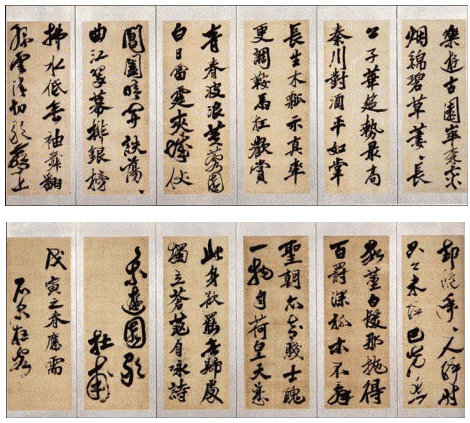 樂遊古園崒森爽
烟綿碧草萋〻長
公子華筵勢最高
秦川對酒平如掌
長生木瓢示真率
更調鞍馬狂歡賞
青春波浪芙蓉園
白日雷霆夾城仗
閶闔晴開詄蕩〻
曲江翠幕排銀榜
拂水低徊袖舞翻
緣雲清切歌聲上
却憶年〻人醉時
只今未醉已先悲
數莖白髮那抛得
百罰深杯亦不辭
聖朝亦知賤士醜
一物自荷皇天慈
此身飲罷無歸處
獨立蒼茫自詠詩
樂遊園歌
杜甫
戊寅之春應需